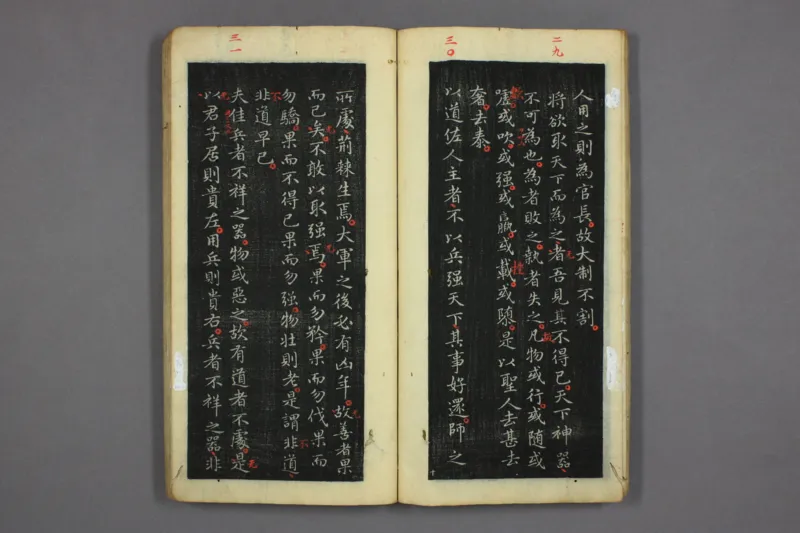 二九
人用之則為官長故大制不割
將欲取天下而為之者吾見其不得已天下神器
不可為也為者敗之執者失之凡物或行或隨或
噓或吹或强或羸或載或隳是以聖人去甚去
奢去泰
三〇
以道佐人主者不以兵强天下其事好還師之
所處荊棘生焉大軍之後必有凶年故善者果
而已矣不敢以取强焉果而勿矜果而勿伐果而
勿驕果而不得已果而勿强物壯則老是謂非道
非道早已
三一
夫佳兵者不祥之器物或惡之故有道者不處是
以君子居則貴左用兵則貴右兵者不祥之器非